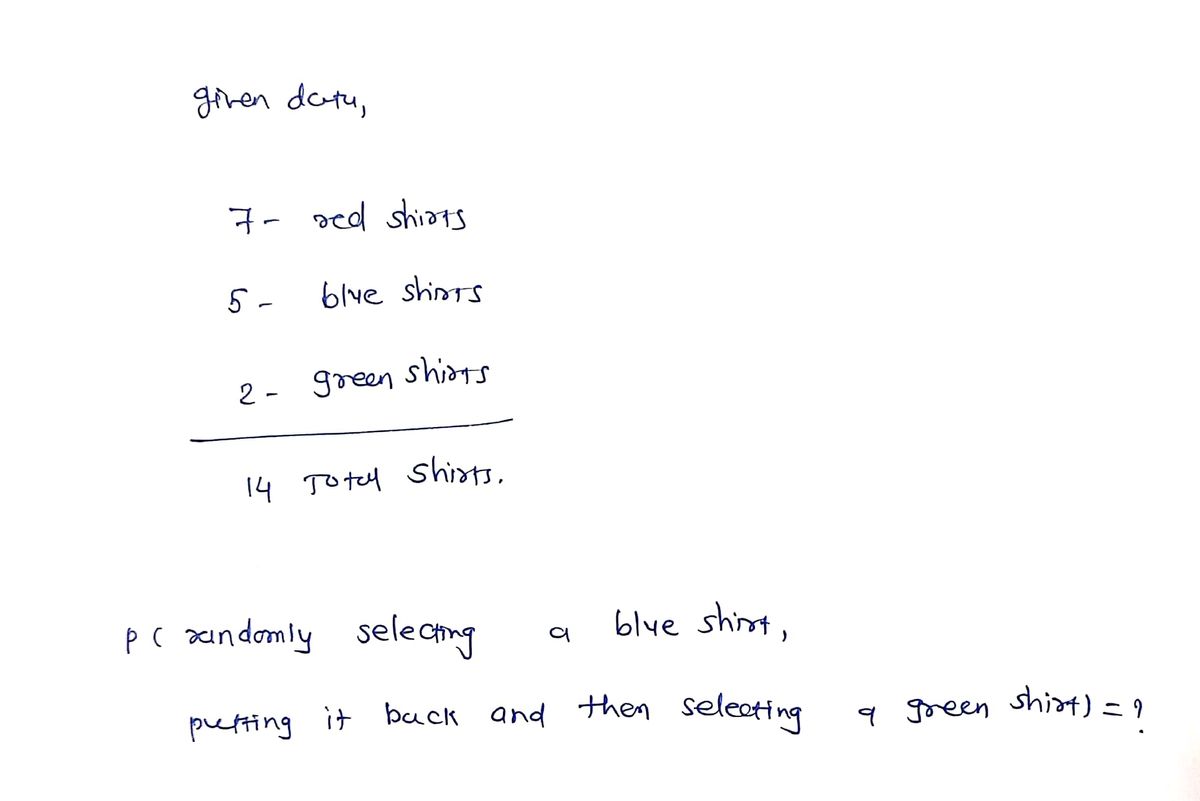 given data,
7- red shirts
5- blue shirts
2- green shirts
14 Total shirts.
P( randomly selecting a blue shirt,
putting it back and then selecting a green shirt) = ?